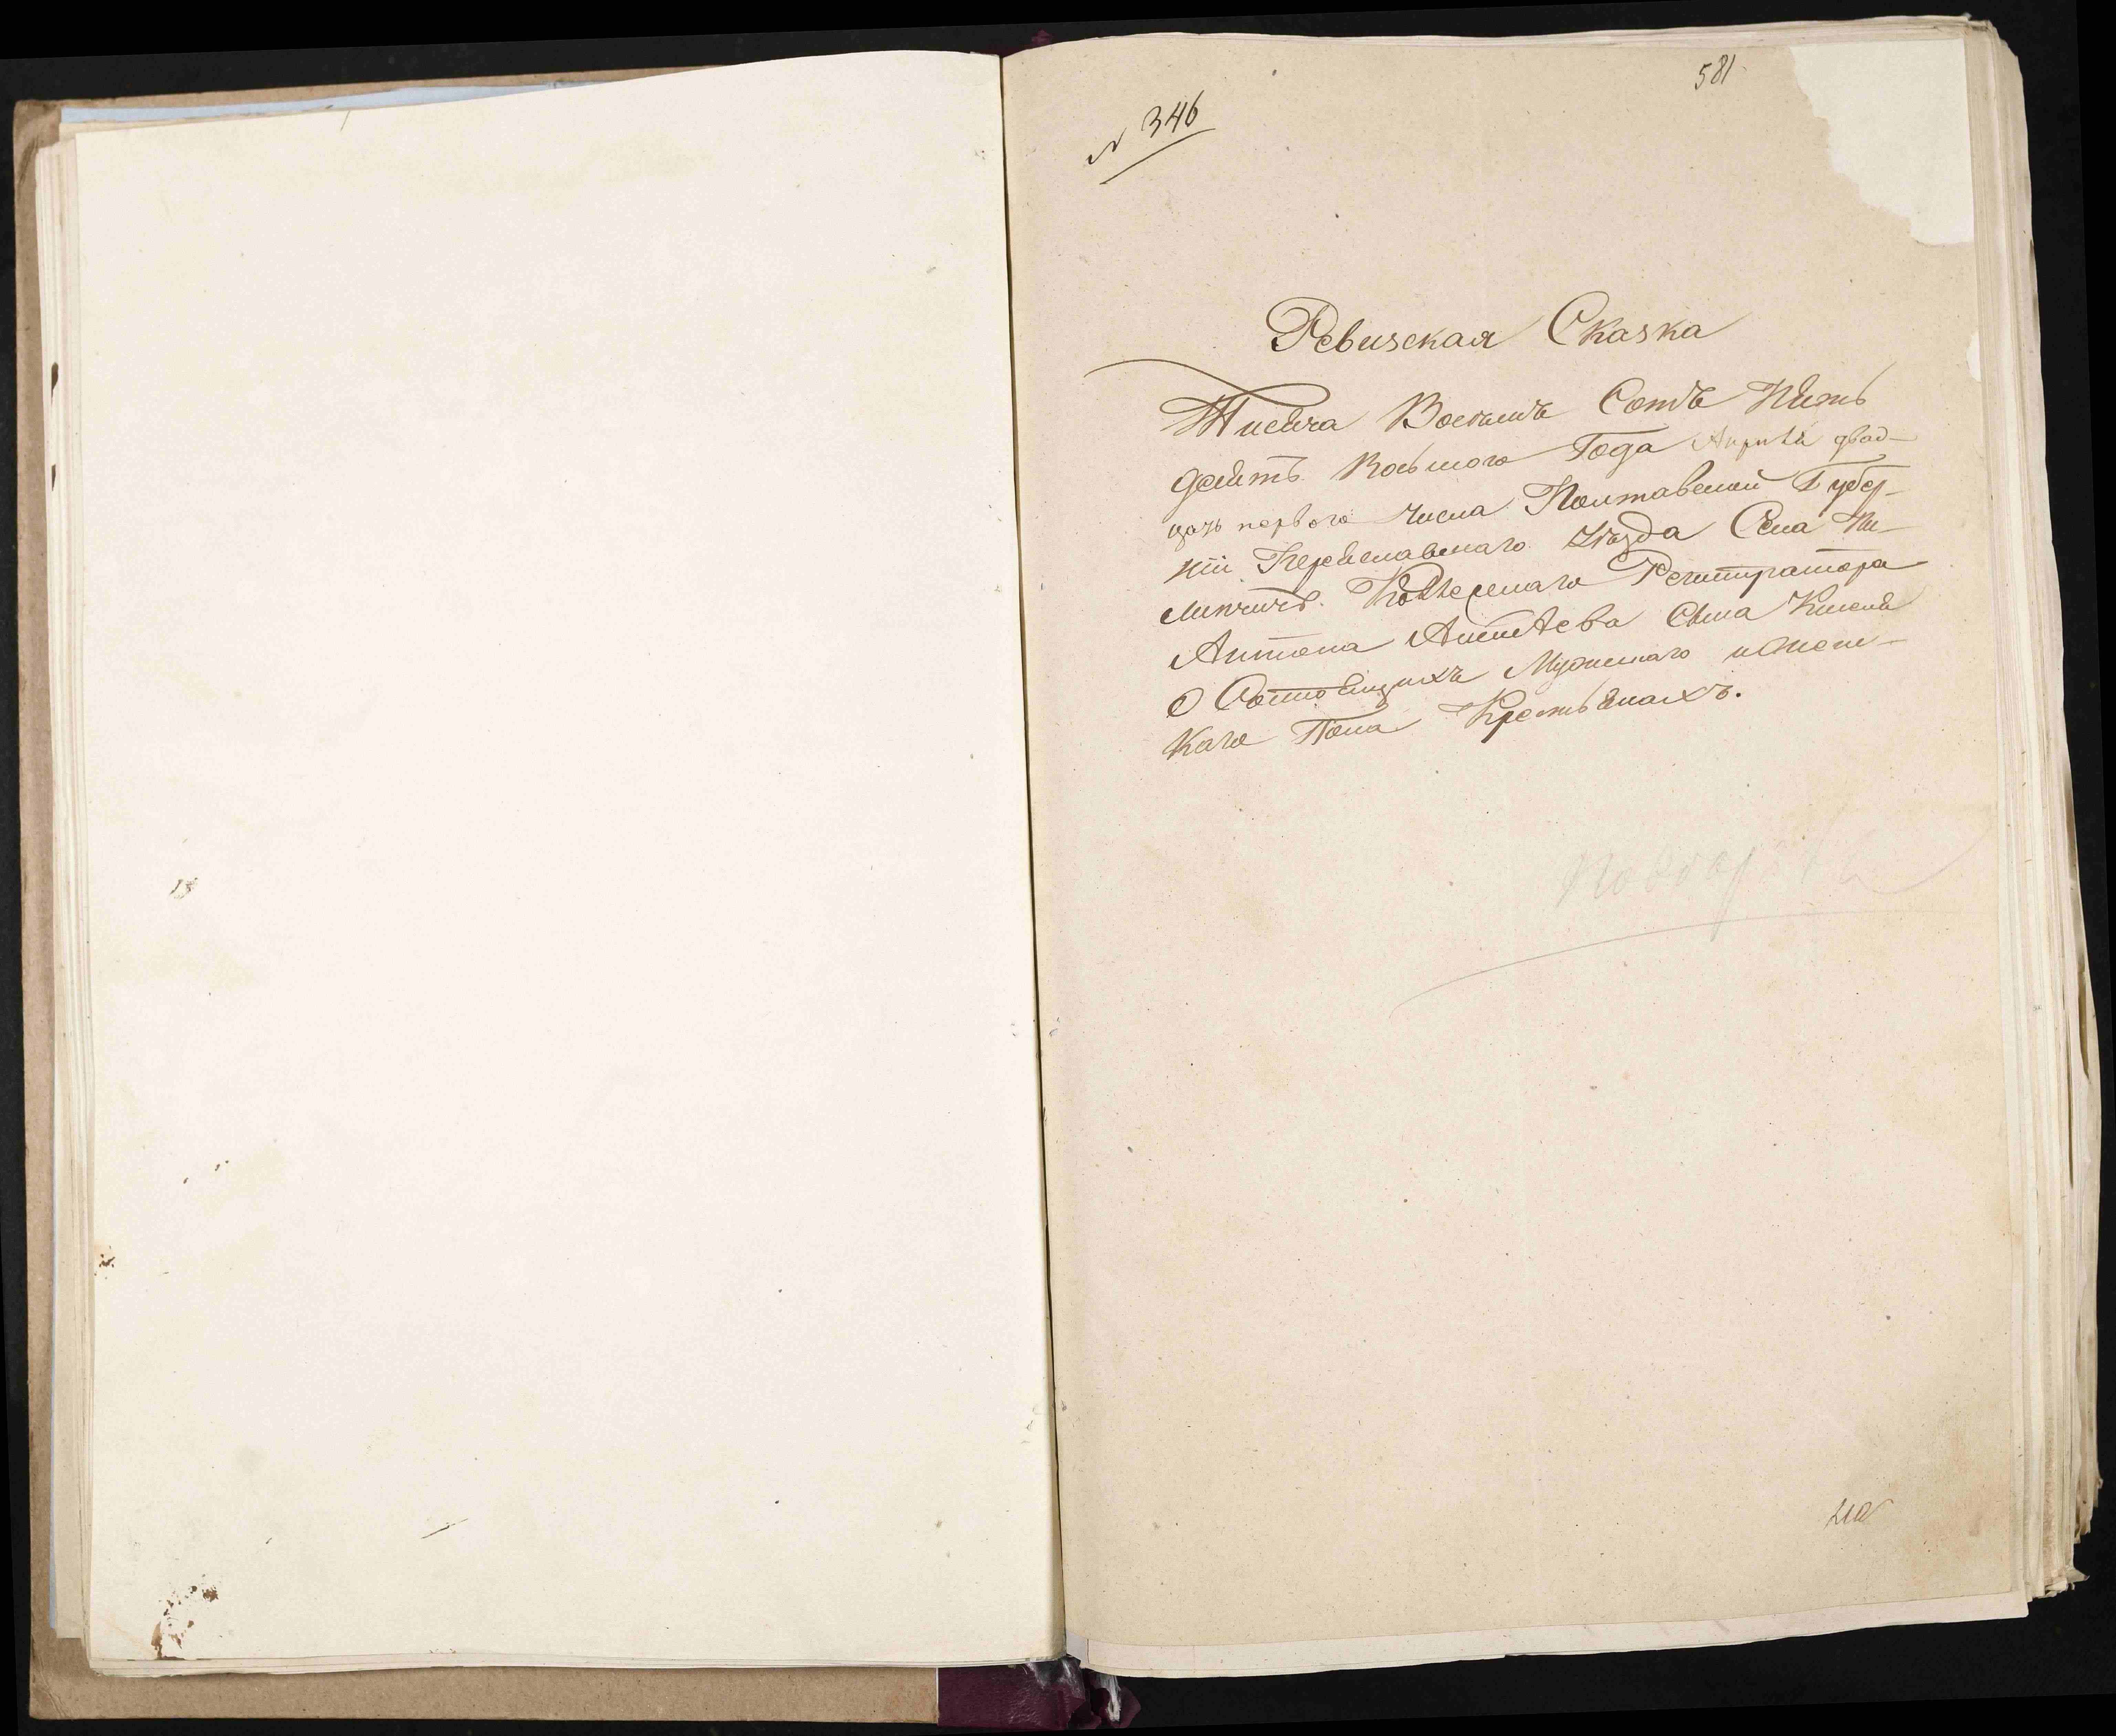 581
N 346
Ревизская Сказка
Тисяча Восемъ Сотъ Пять
десятъ Восьмого Года Апреля двад-
цать первого Числа Полтавской Губер-
ніи Переяславскаго Уѣзда Села
Коллежскаго Регистратора
Антона Сына
О Состоящихъ Мужескаго и Женс-
каго Пола Крестьянахъ.